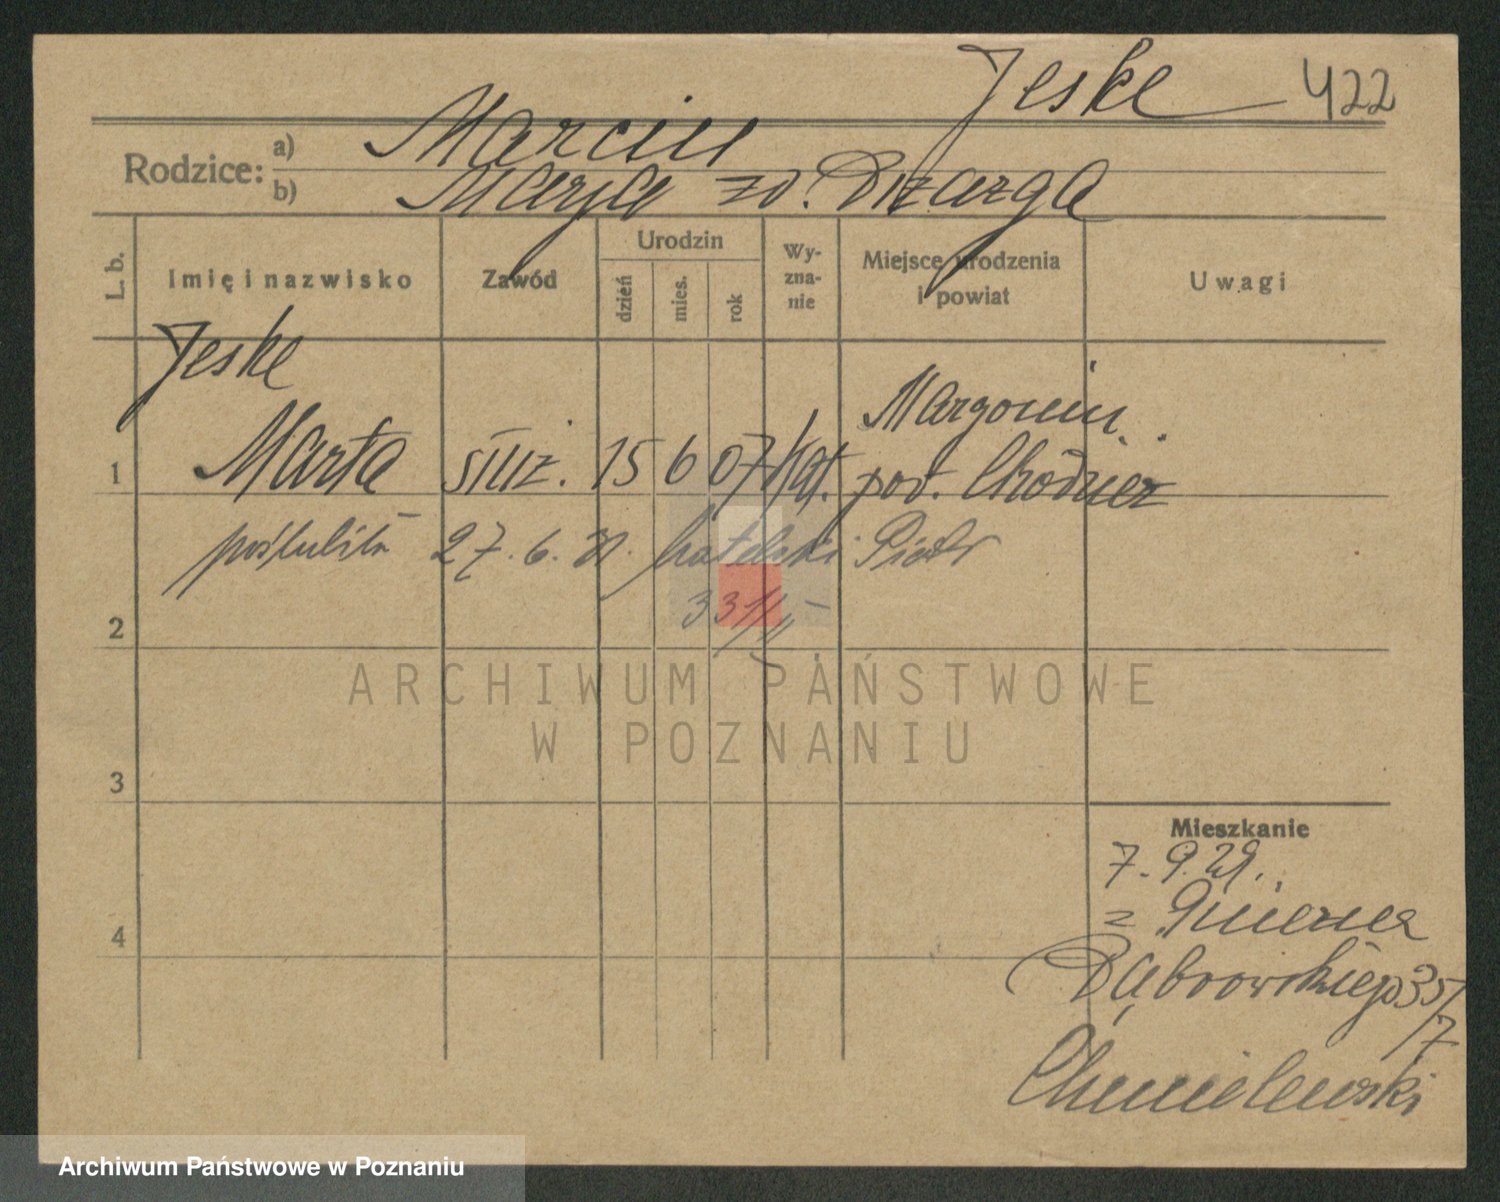 Jeske 422
Rodzice:
a) Marcin
b) Marya zd. Drzazga
L. b.
Imię i nazwisko
Zawód
Urodzin
dzień
mies.
rok
Wy-
zna-
nie
Miejsce urodzenia
i powiat
Uwagi
Jeske
1 Marta służ. 15 6 07 kat. Margonin
pow. Chodzież
poślubiła 27. 6. 31. Piotr
2
3
4
Mieszkanie
7. 9. 29.
z Gniezna
Dąbrowskiego 35/
7
Chmielewski
ARCHIWUM PAŃSTWOWE
W POZNANIU
Archiwum Państwowe w Poznaniu